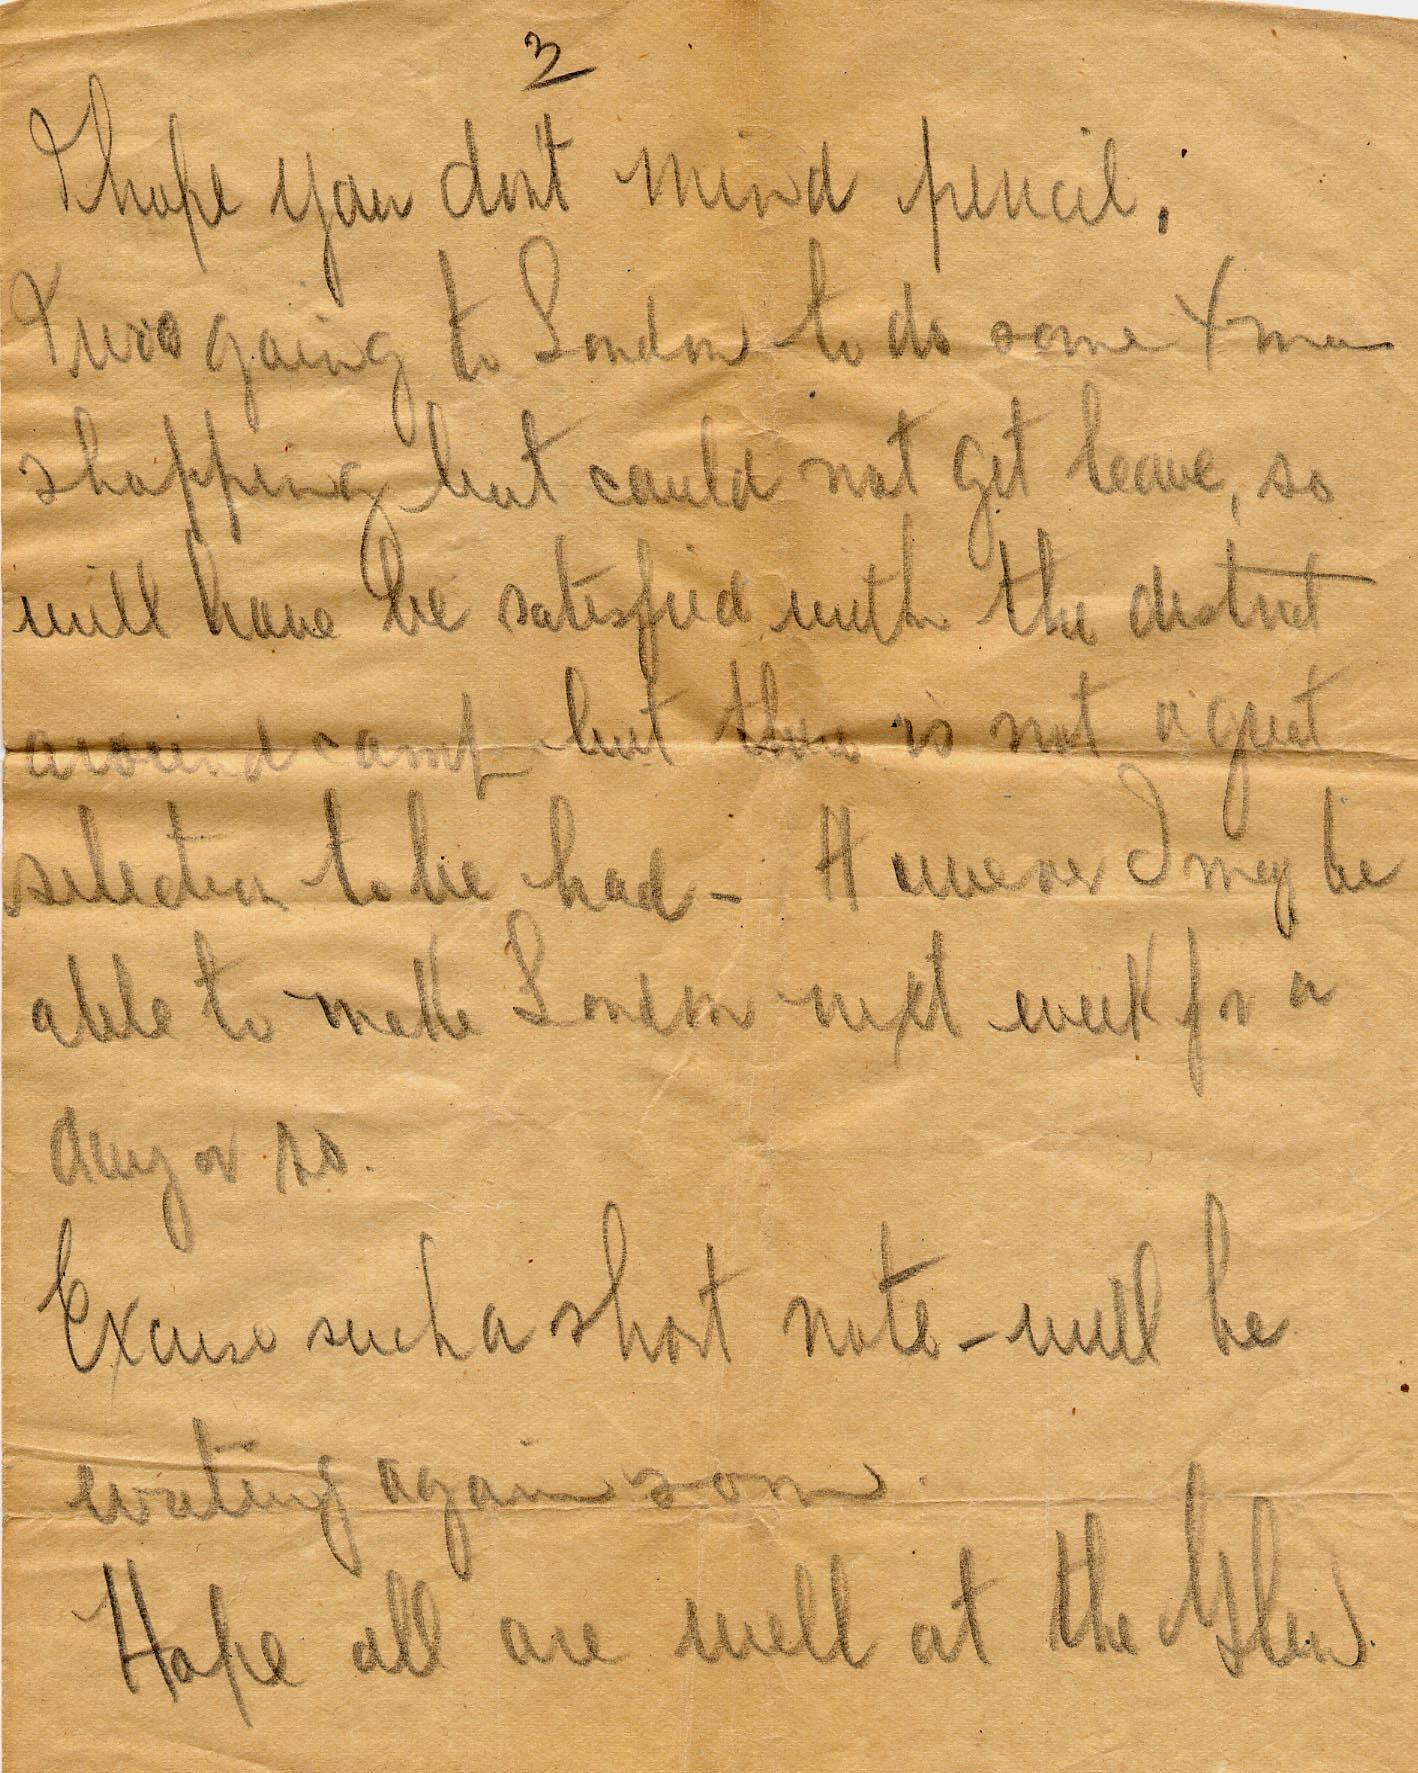 2
I hope you don't mind pencil.
I was going to London to do some Xmas
shopping but could not get leave, so
will have be satisfied with the district
around camp but there is not a great
selection to be had - However I may be
able to make London next week for a
day or so.
Excuse such a short note - will be
writing again soon.
Hope all are well at the Glen.